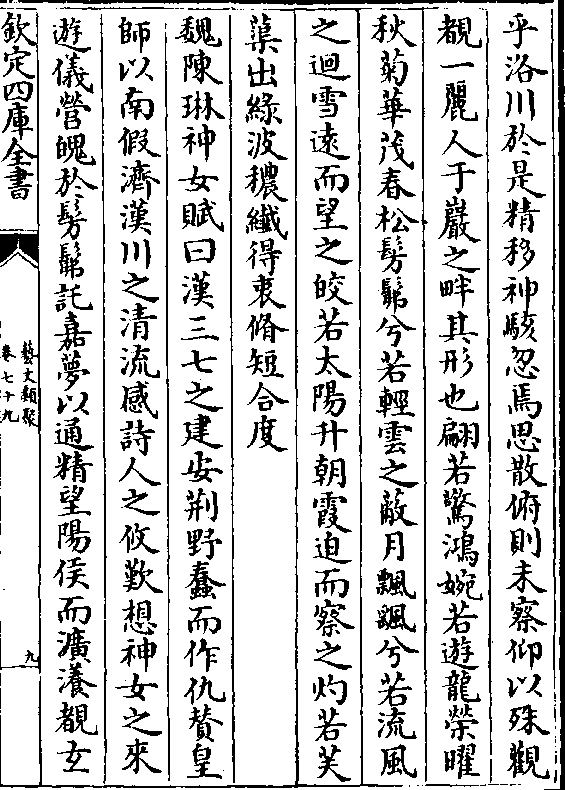 乎洛川於是精移神駭忽焉思散俯則未察仰以殊觀
覩一麗人于巖之畔其形也翩若驚鴻婉若遊龍榮曜
秋菊華茂春松髣髴兮若輕雲之蔽月飄颻兮若流風
之迴雪遠而望之皎若太陽升朝霞迫而察之灼若芙
蕖出綠波穠纖得衷脩短合度
魏陳琳神女賦曰漢三七之建安荆野蠢而作仇贊皇
師以南假濟漢川之清流感詩人之攸歎想神女之來
遊儀營魄於髣髴託嘉夢以通精望陽侯而瀇瀁覩玄
欽定四庫全書
藝文類聚
卷七十九
九